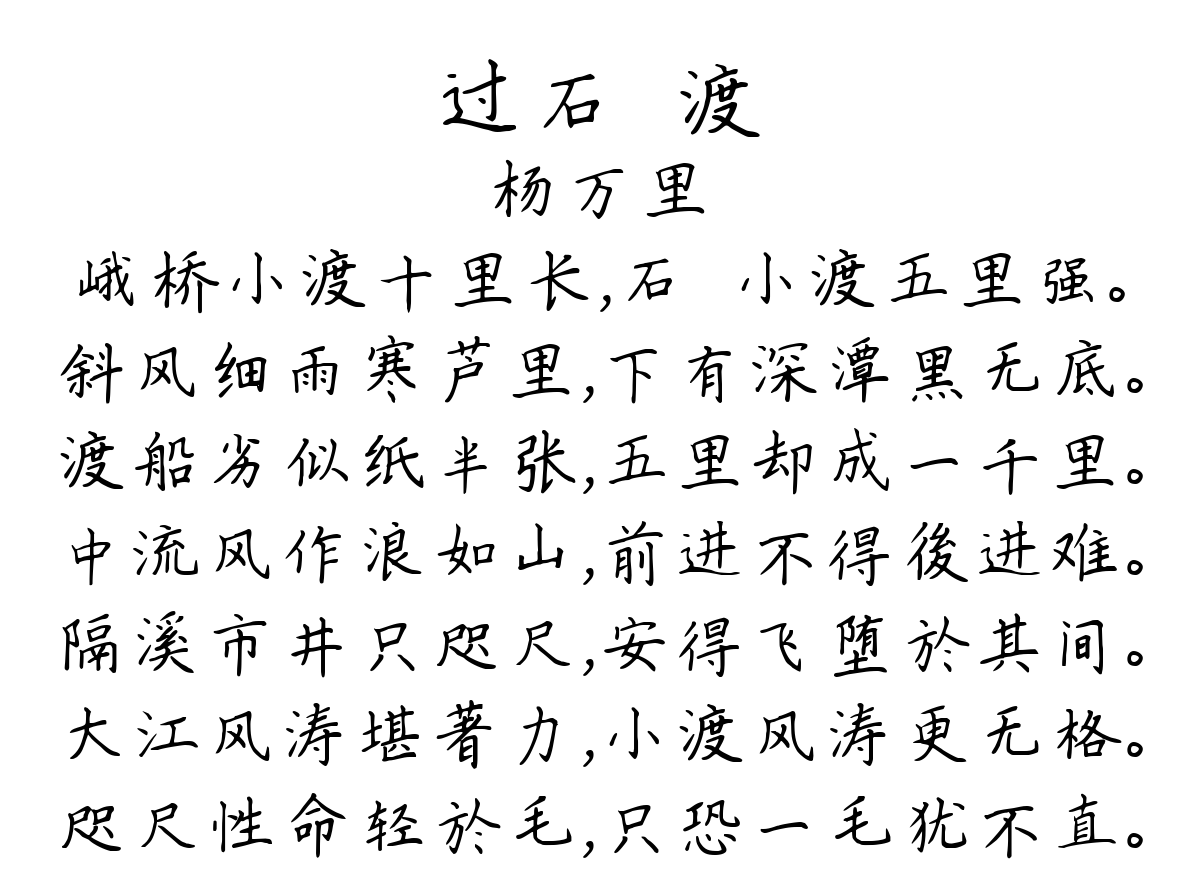 过石 渡
杨万里
峨桥小渡十里长,石 小渡五里强。
斜风细雨寒芦里,下有深潭黑无底。
渡船劣似纸半张,五里却成一千里。
中流风作浪如山,前进不得後进难。
隔溪市井只咫尺,安得飞堕於其间。
大江风涛堪著力,小渡风涛更无格。
咫尺性命轻於毛,只恐一毛犹不直。